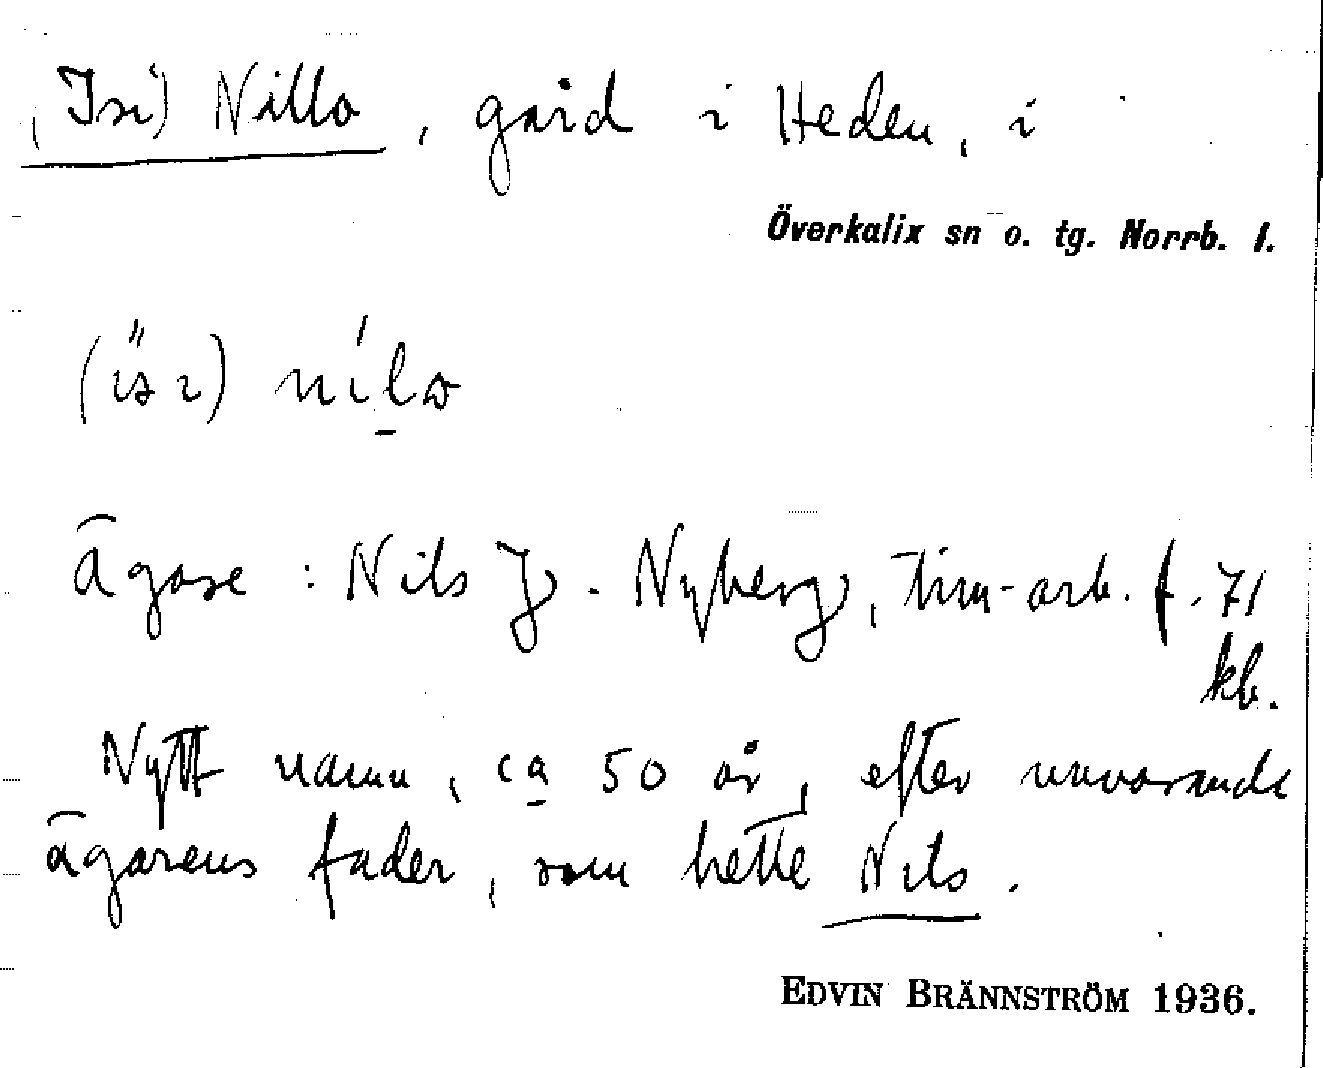 (Isi) Nillo, gård i Heden, i
Överkalix sn o. tg. Norrb. l.
Ägare: Nils J. Nyberg, tim-arb. f. 71
kb.
Nytt namn, ca 50 år, efter nuvarande
ägarens fader, som hette Nils.
EDVIN BRÄNNSTRÖM 1936.